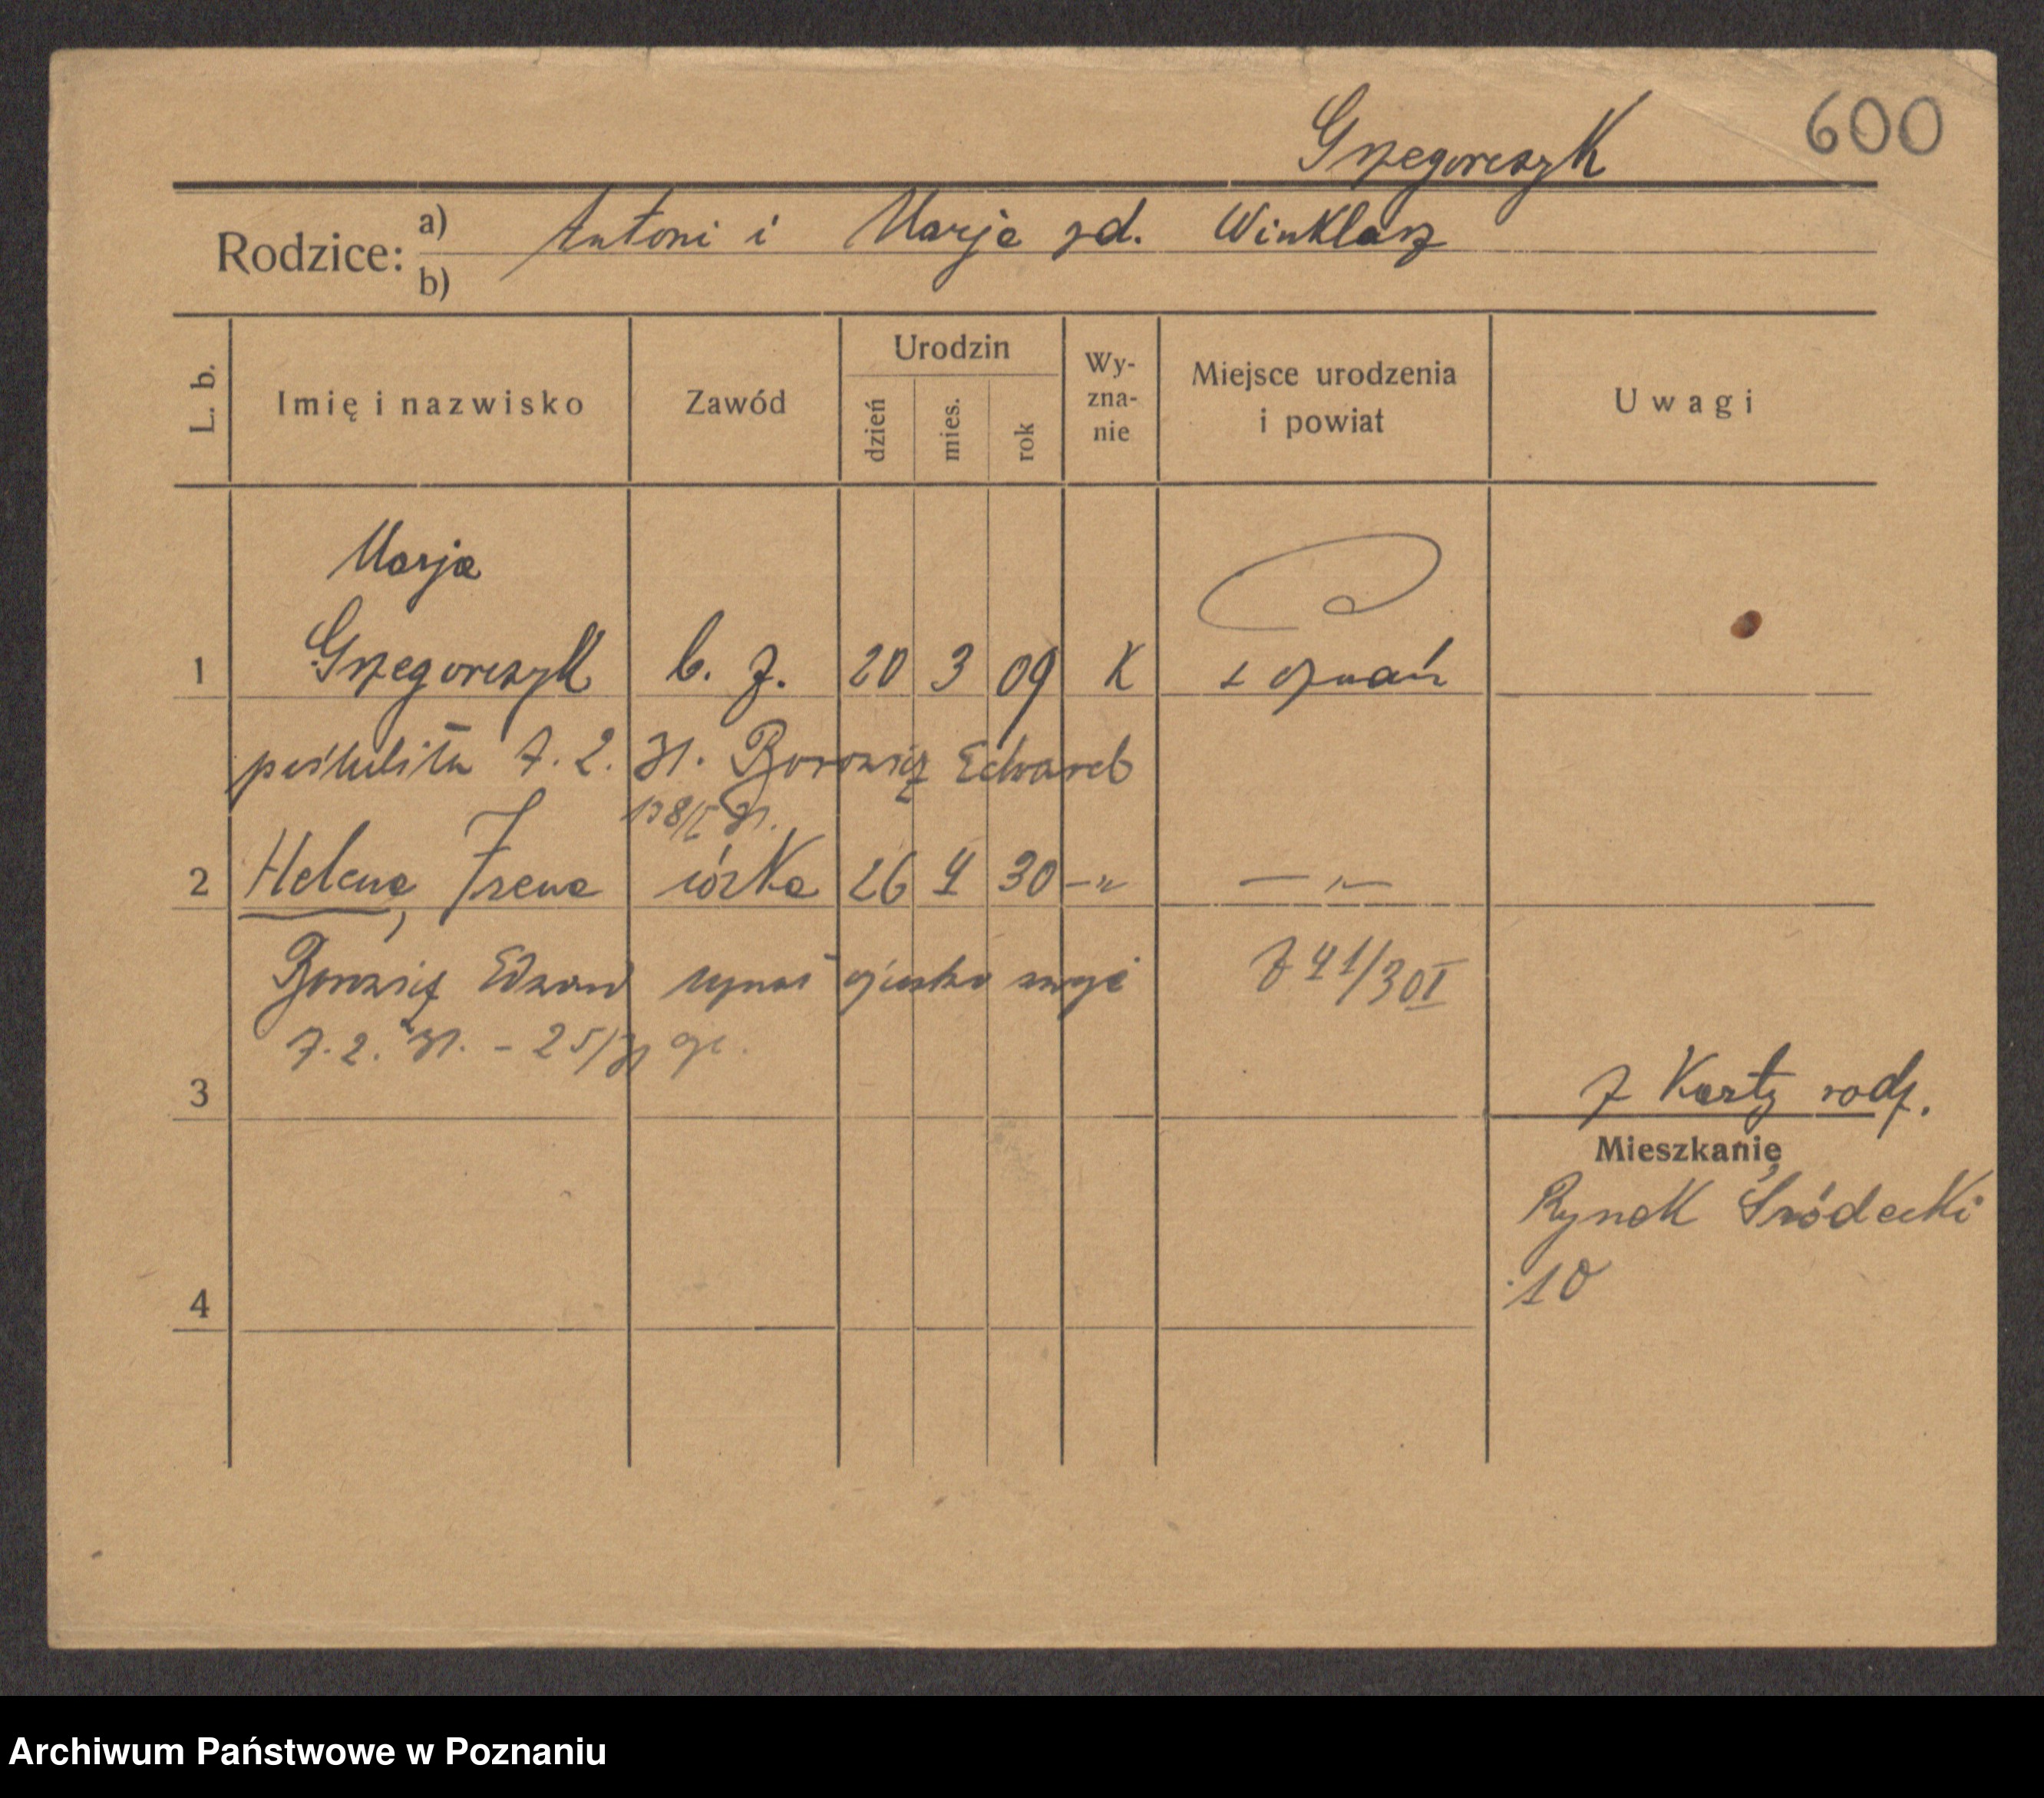 600
Grzegorczyk
Rodzice: a) Antoni i Marja zd. Winklarz
b)
L. b. Imię i nazwisko Zawód Urodzin dzień mies. rok Wy-zna-nie Miejsce urodzenia i powiat Uwagi
Marja
1 Grzegorczyk b. z. 20 3 09 K Poznań
poślubiła 7. 2. 31. Borowicz Edward
2 Helena, Irena córka 26 4 30 -"- -"-
Borowicz Edward uznał ojcostwo 41/30 I
7. 2. 31. - 25/31
3 z Karty rodz.
Mieszkanie
Rynek Śródecki
10
4
Archiwum Państwowe w Poznaniu